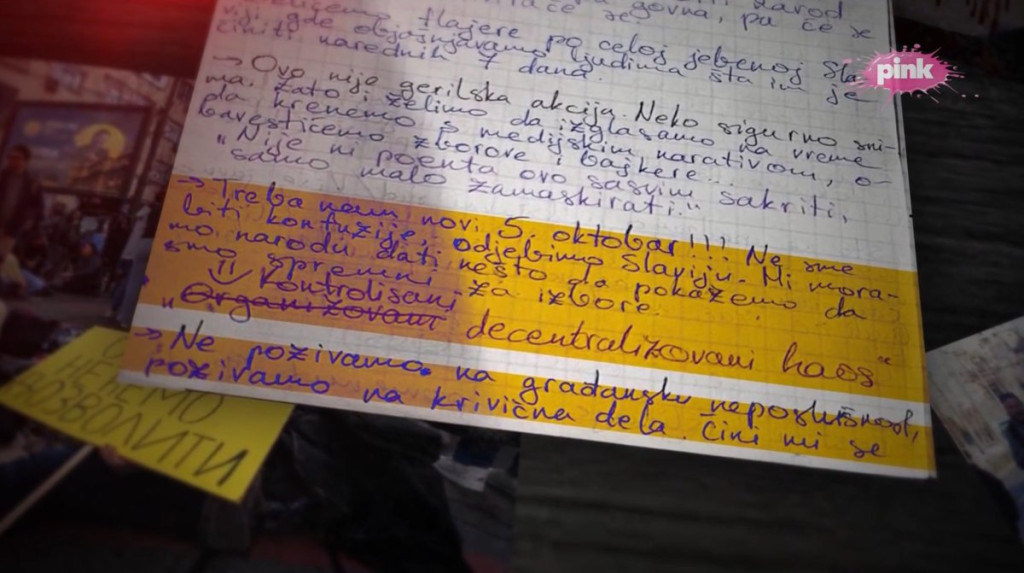 govna, pa će se
flajere po celoj jebenoj Sla-
viji gde objašnjavamo ljudima šta im je
činiti narednih 7 dana.
→ Ovo nije gerilska akcija. Neko sigurno sni-
ma. Zato želimo da izglasamo na vreme
da krenemo s medijskim narativom, o-
bavestićemo zborove i bajkere...
"Nije ni poenta ovo sasvim sakriti,
samo malo zamaskirati."
→ Treba nam novi 5. oktobar!!! Ne sme
biti konfuzije, odjebimo Slaviju. Mi mora-
mo narodu dati nešto da pokažemo da
smo spremni za izbore.
Kontrolisani
"Organizovani decentralizovani haos"
→ Ne pozivamo na građansku neposlušnost,
pozivamo na krivična dela. Čini mi se
pink
НЕЋЕМО
ДОЗВОЛИТИ